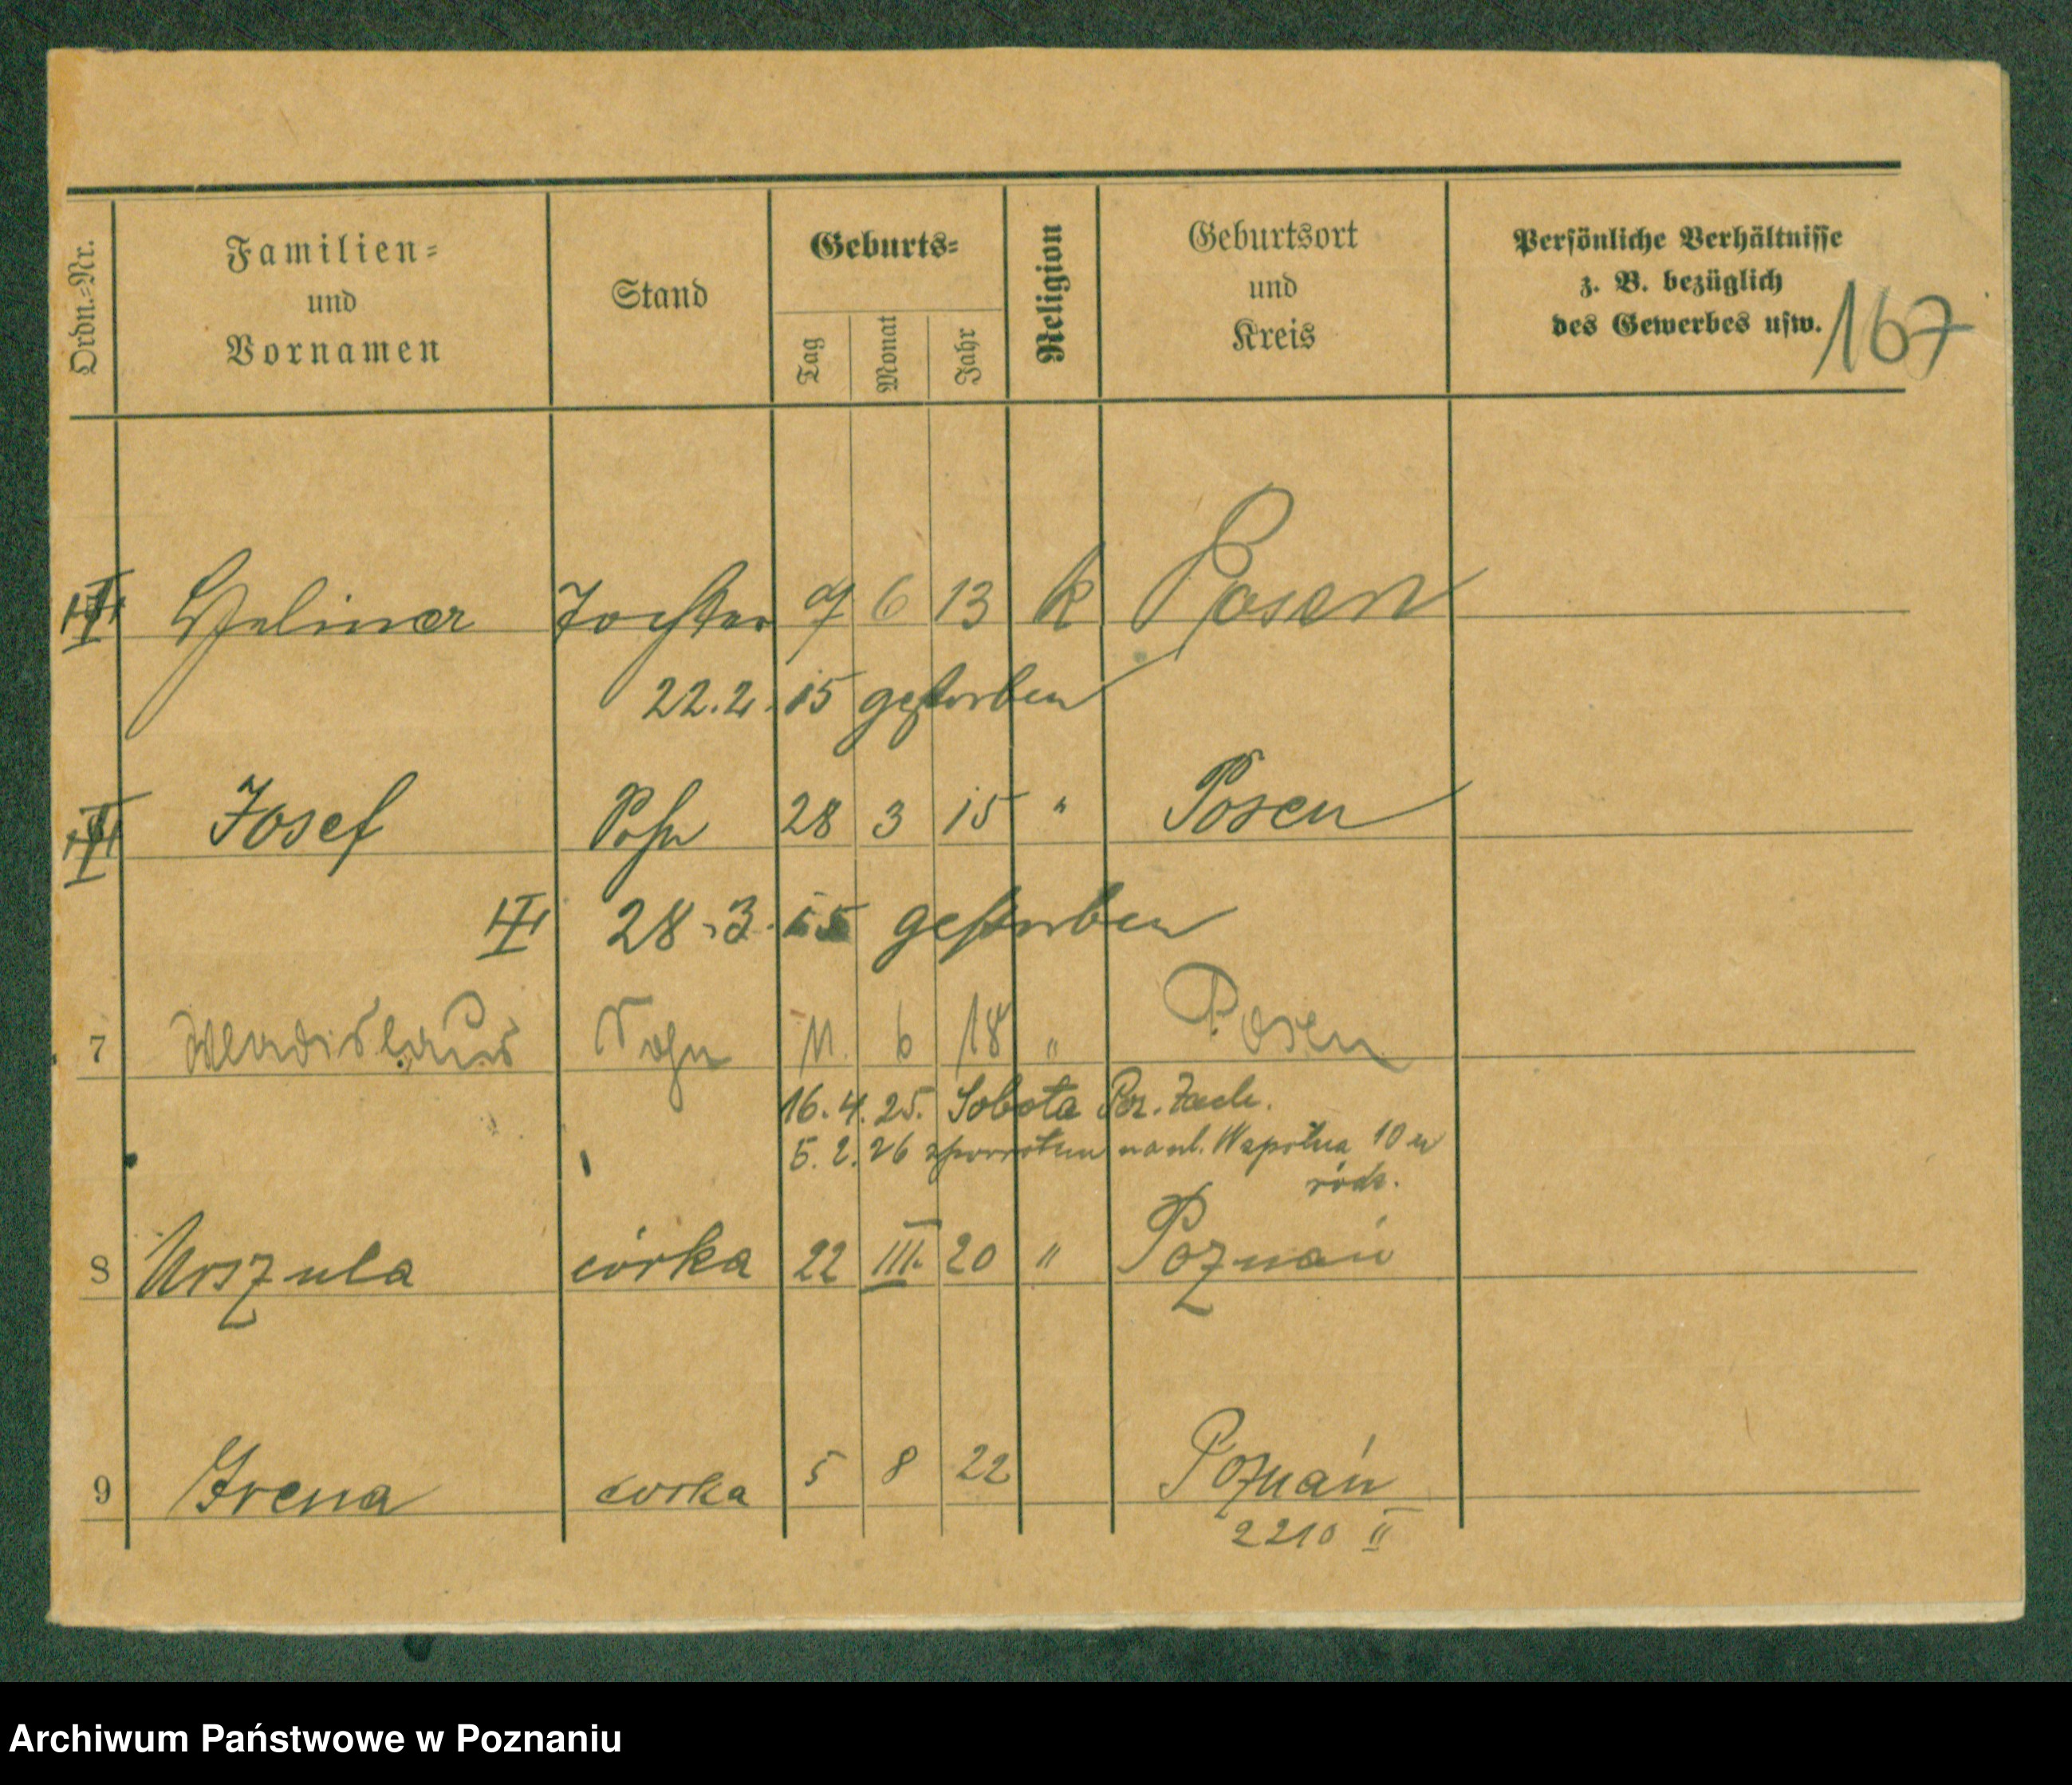 Ordn.=Nr.
Familien=
und
Vornamen
Stand
Geburts=
Tag
Monat
Jahr
Religion
Geburtsort
und
Kreis
Persönliche Verhältnisse
z. B. bezüglich
des Gewerbes usw.
167
Tochter 9 6 13 k Posen
22.2.15 gestorben
Josef Sohn 28 3 15 " Posen
28.3.15 gestorben
7 Wladislaus Sohn 11. 6 18 " Posen
16.4.25. Sobota Poz. Zach.
5.2.26 zpowrotem na ul. 10 u
rodz.
8 Urszula córka 22 III. 20 " Poznań
9 Irena corka 5 8 22 Poznań
2210 II
Archiwum Państwowe w Poznaniu